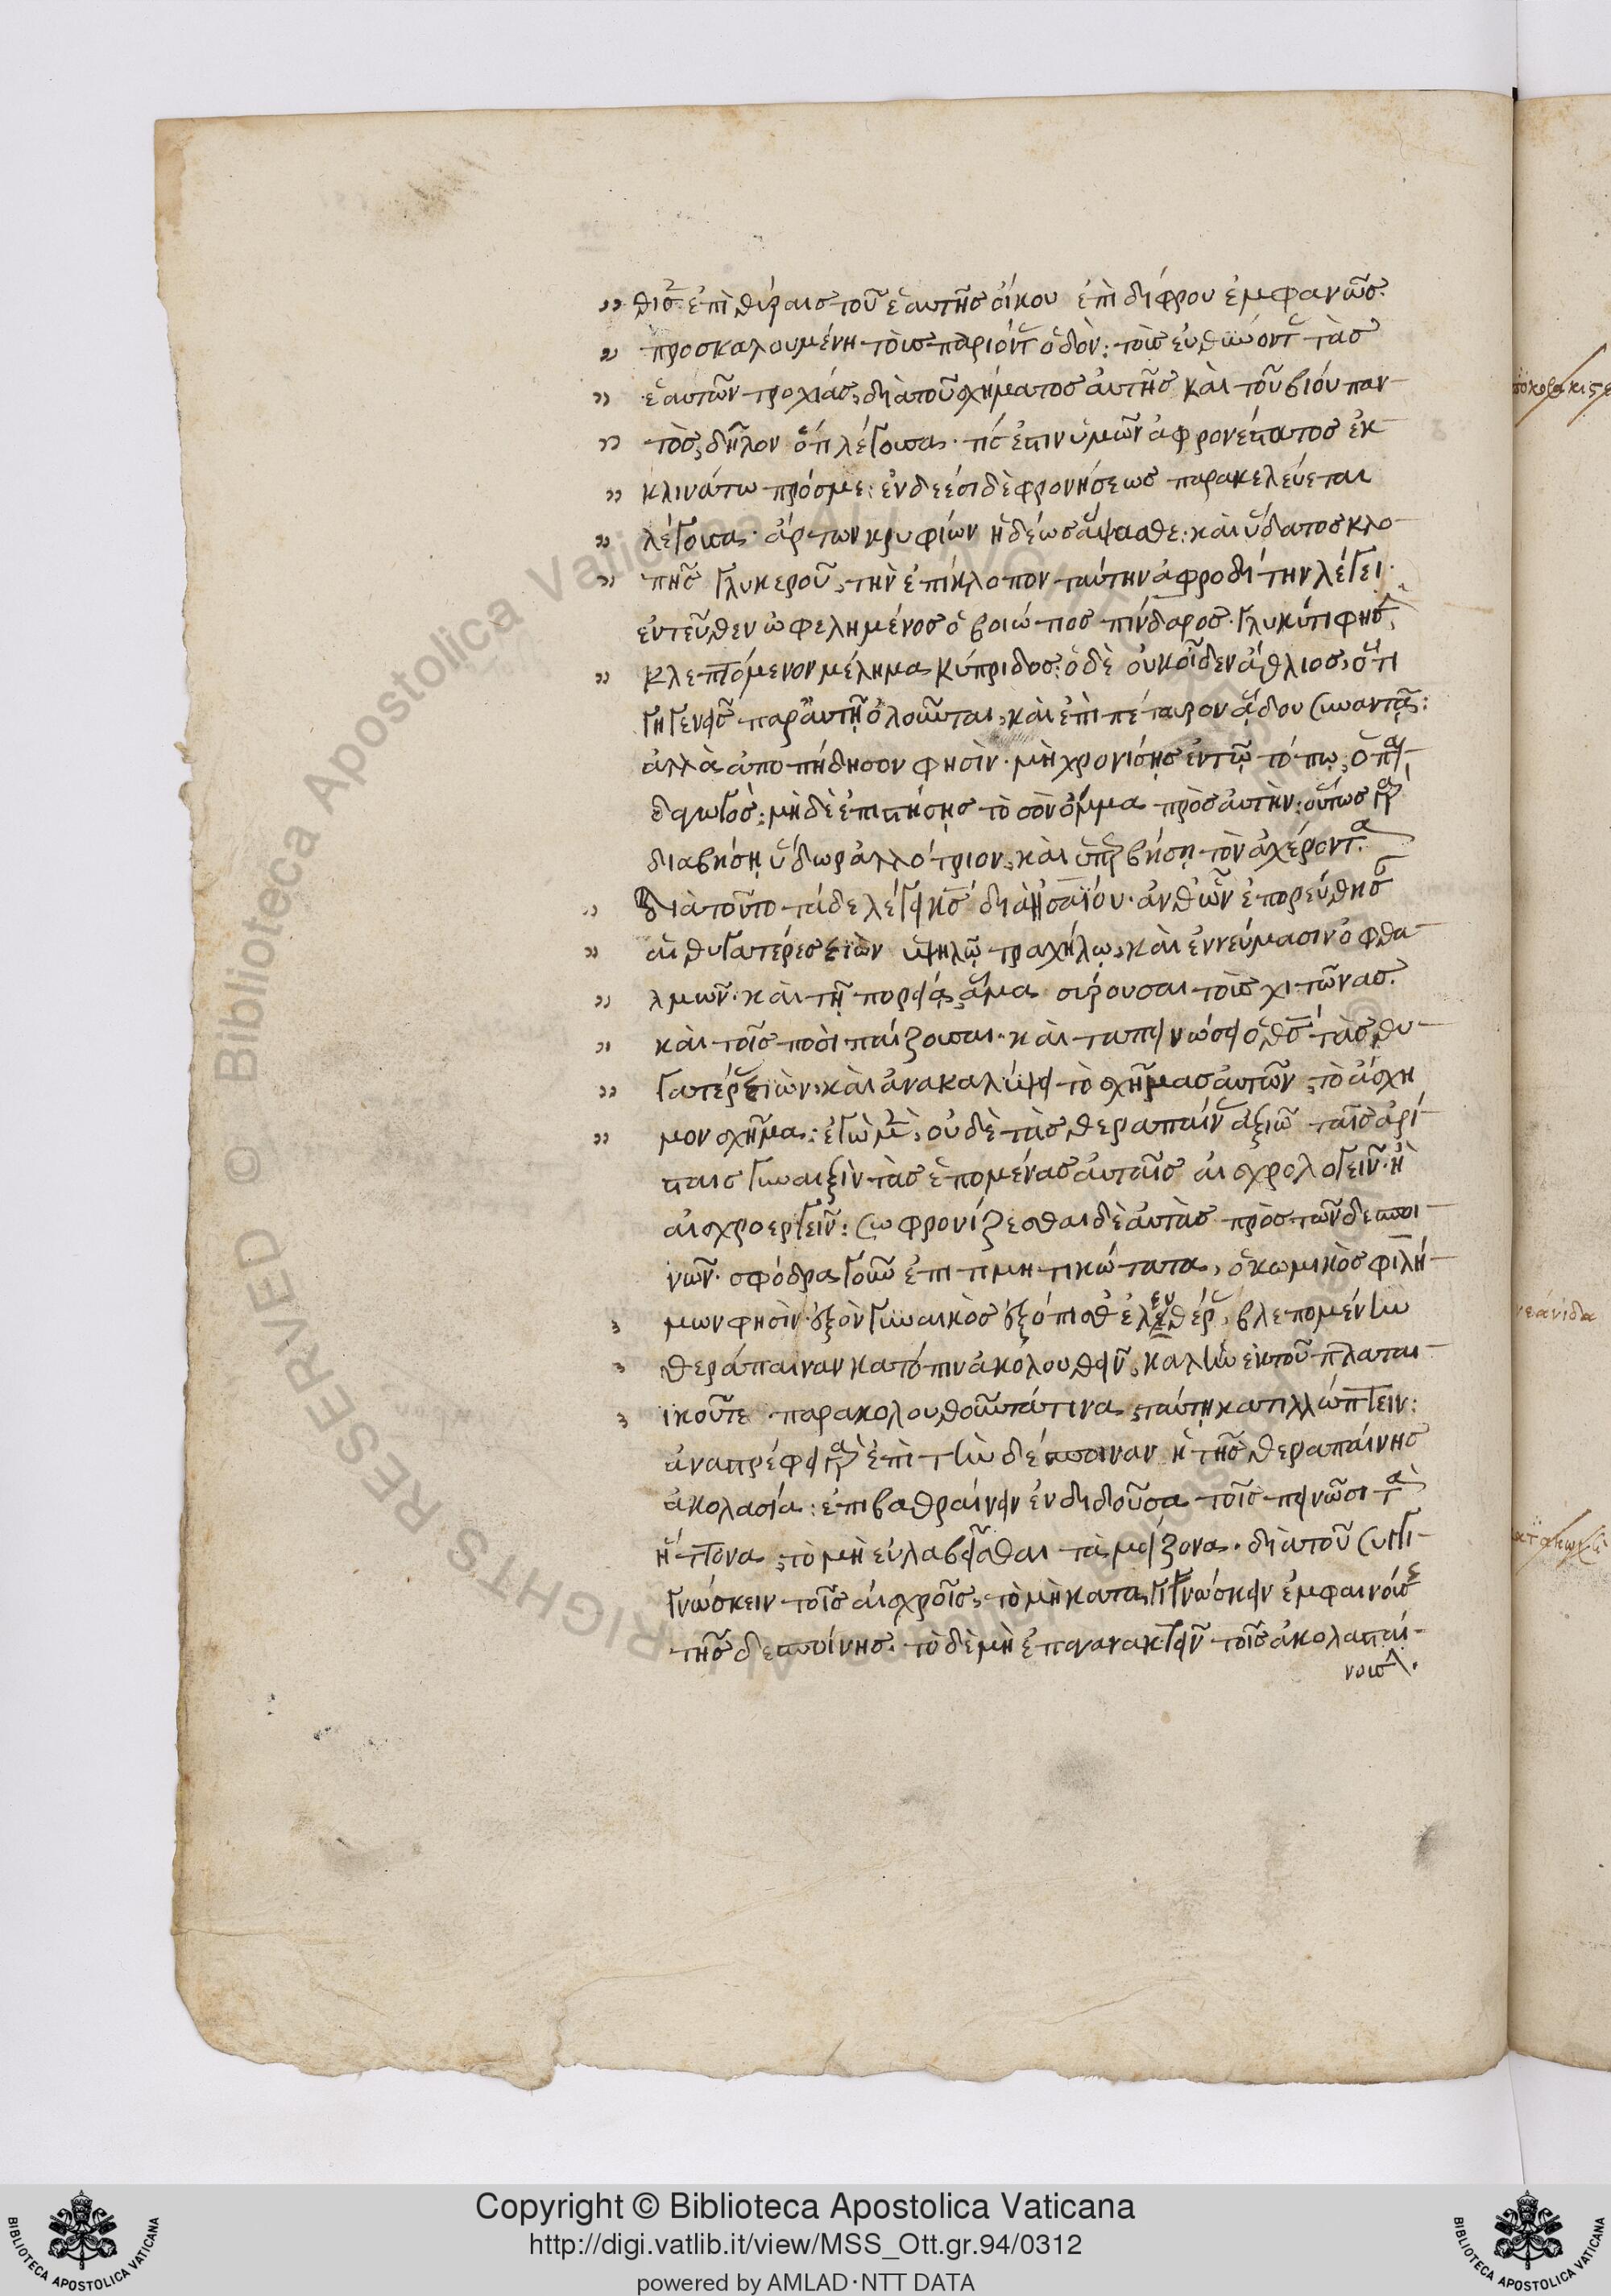 θισ ἐπὶ θύραισ τοῦ ἑαυτῆσ οἴκου ἐπὶ δίφρου ἐμφανῶσ.
προσκαλουμένη τοὺσ παριόντ ὁδὸν: τοὺσ εὐθύνοντ τὰσ
ἑαυτῶν τροχιὰσ, διὰ τοῦ σχήματοσ αὐτῆσ καὶ τοῦ βίου παν-
τὸσ, δῆλον ὅτι λέγουσα· τίσ ἐστιν ὑμῶν ἀφρονέστατοσ ἐκ
κλινάτω πρόσ με: ἐνδεέσι δὲ φρονήσεωσ παρακελεύεται
λέγουσα· ἄρτων κρυφίων ἡδέωσ ἅψασθε: καὶ ὕδατοσ κλο-
πῆσ γλυκεροῦ, τὴν ἐπίκλοπον ταύτην ἀφροδίτην λέγει·
ἐντεῦθεν ὠφελημένοσ ὁ βοιώτιοσ πίνδαροσ· γλυκύ τι φησ
κλεπτόμενον μέλημα κύπριδοσ: ὁ δὲ οὐκ οἶδεν ἄθλιοσ, ὅτι
γηγενεῖσ παρ' αὐτῇ ὄλουνται, καὶ ἐπὶ πέταυρον ᾅδου συναντᾷ:
ἀλλὰ ἀποπήδησον φησὶν· μὴ χρονίσῃσ ἐν τῷ τόπῳ, ὁ παι-
δαγωγόσ: μὴ δὲ ἐπιστήσῃσ τὸ σὸν ὄμμα πρὸσ αὐτὴν: οὕτωσ γὰρ
διαβήσῃ ὕδωρ ἀλλότριον, καὶ ὑπερβήσῃ τὸν ἀχέροντα
διὰ τοῦτο τάδε λέγει κσ διὰ ἡσαΐου· ἀνθ' ὧν ἐπορεύθησ
αἱ θυγατέρεσ σιὼν ὑψηλῷ τραχήλῳ, καὶ ἐν νεύμασιν ὀφθα-
λμῶν· καὶ τῇ πορείᾳ ἅμα σύρουσαι τοὺσ χιτῶνασ.
καὶ τοῖσ ποσὶ παίζουσαι· καὶ ταπεινώσει ὁ θσ τὰσ θυ-
γατέρ σιὼν, καὶ ἀνακαλύψει τὸ σχῆμασ αὐτῶν, τὸ ἄσχη
μον σχῆμα: ἐγὼ μὲν οὐδὲ τὰσ θεραπαίν ἀξιῶ ταῖσ ἀρί-
σταισ γυναιξὶν τὰσ ἑπομένασ αὐταῖσ αἰσχρολογεῖν· ἢ
αἰσχροεργεῖν: σωφρονίζεσθαι δὲ αὐτὰσ πρὸσ τῶν δεσποι-
νῶν· σφόδρα γοῦν ἐπιτιμητικώτατα, ὁ κωμικὸσ φιλή-
μων φησὶν· ἐξὸν γυναικὸσ ἐξόπισθ ἐλευθέρ, βλεπομένην
θεράπαιναν κατόπιν ἀκόλουθεῖν, καλὴν ἐκ τοῦ πλαται-
ικοῦ τε παρακολουθοῦντά τινα, ταύτῃ κατιλλώπτειν:
ἀναστρέφει γὰρ ἐπὶ τὴν δέσποιναν ἡ τῆσ θεραπαίνησ
ἀκολασία: ἐπιβαθραίνειν ἐνδιδοῦσα τοῖσ πεινῶσι τὰ
ἥττονα, τὸ μὴ εὐλαβεῖσθαι τὰ μείζονα· διὰ τοῦ συγγι-
γνώσκειν τοῖσ αἰσχροῖσ, τὸ μὴ καταγιγνώσκειν ἐμφαινούσ
τῆσ δεσποίνησ: τὸ δὲ μὴ ἐπαγανακτεῖν τοῖσ ἀκολασταί-
νουσ
Copyright © Biblioteca Apostolica Vaticana
http://digi.vatlib.it/view/MSS_Ott.gr.94/0312
powered by AMLAD·NTT DATA